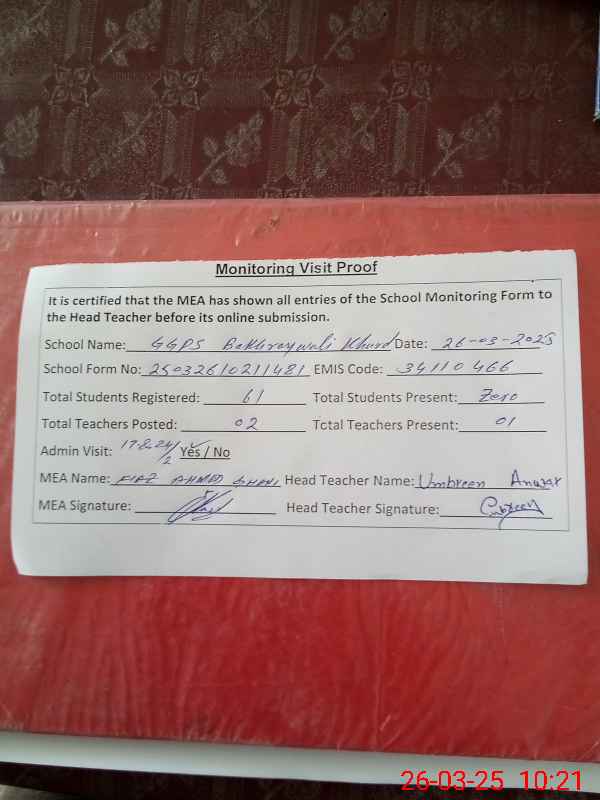 Monitoring Visit Proof
It is certified that the MEA has shown all entries of the School Monitoring Form to
the Head Teacher before its online submission.
School Name: GGPS Bakhraywali Khurd Date: 26-03-2025
School Form No: 25032610211481 EMIS Code: 34110466
Total Students Registered: 61 Total Students Present: Zero
Total Teachers Posted: 02 Total Teachers Present: 01
Admin Visit: Yes / No
MEA Name: FIAZ AHMED GHANI Head Teacher Name: Umbreen Anwar
MEA Signature: Head Teacher Signature: Umbreen
26-03-25 10:21